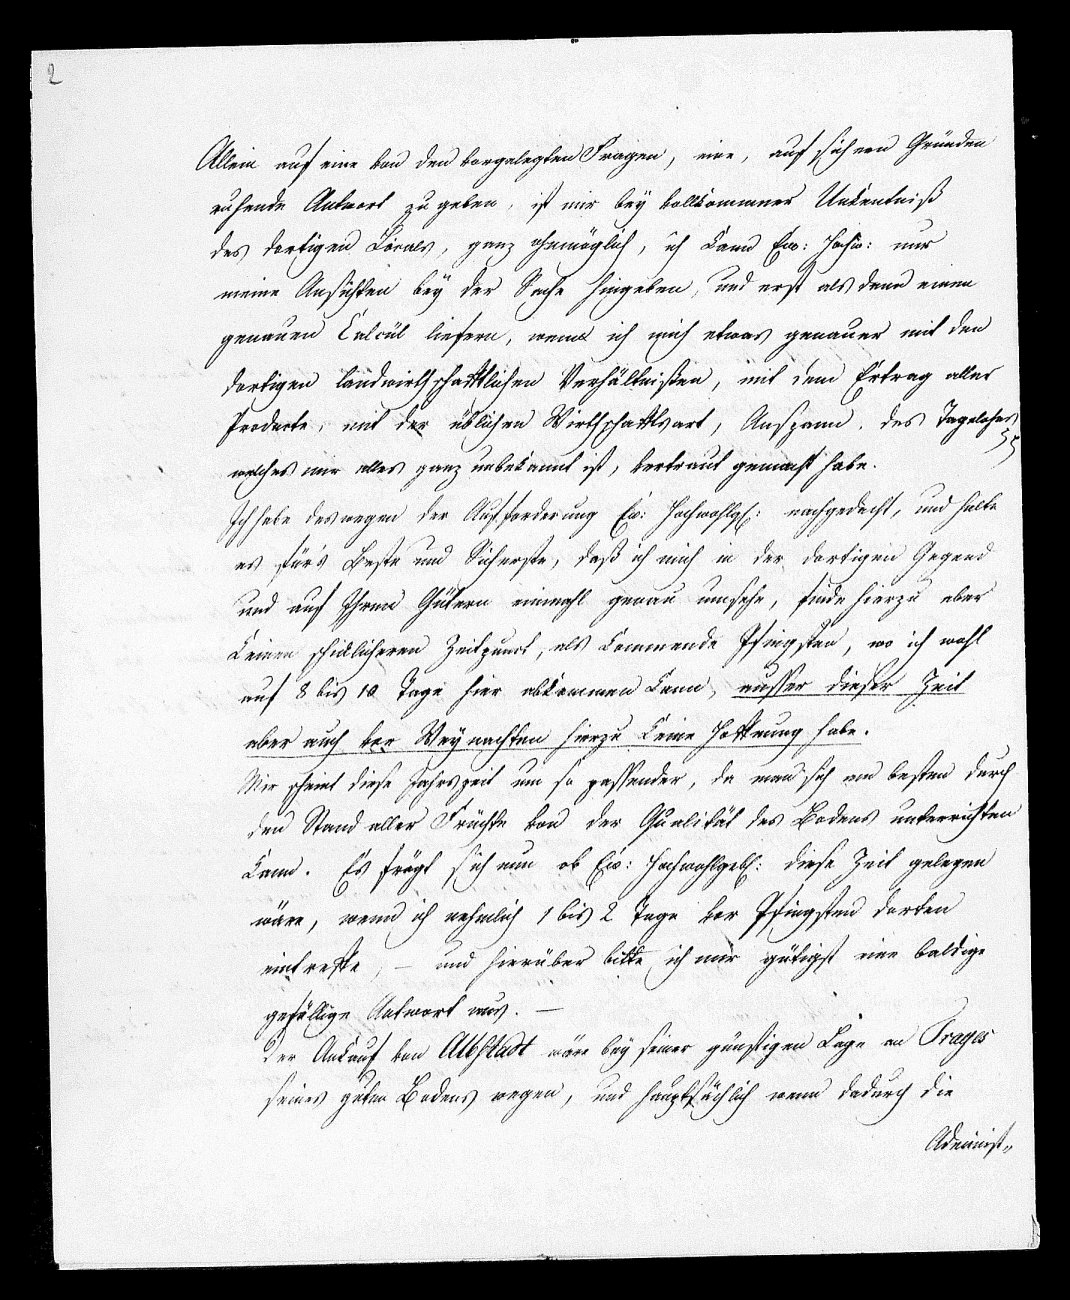 2
Allein auf eine von den vorgelegten Fragen, eine, auf sichern Gründen
ruhende Antwort zu geben, ist mir bey vollkommner Unkentniß
des dortigen Locals, ganz ohnmöglich, ich kann Ew: Hochw: nur
meine Ansichten bey der Sache hingeben, und erst als dann einen
genauen Calcül liefern, wenn ich mich etwas genauer mit den
dortigen landwirthschaftlichen Verhältnißen, mit dem Ertrag aller
Producte, mit der üblichen Wirthschaftsart, Anspann, des Tagelohns
welches mir alles ganz unbekannt ist, vertraut gemacht habe.
Ich habe deswegen der Aufforderung Ew: Hochwohlg: nachgedacht, und halte
es fürs Beste und Sicherste, daß ich mich in der dortigen Gegend
und auf Ihren Gütern einmahl genau umsehe, finde hierzu aber
keinen schicklicheren Zeitpunct, als kommende Pfingsten, wo ich wohl
auf 8 bis 10 Tage hier abkommen kann, ausser dieser Zeit
aber auch vor Weynachten hierzu keine Hoffnung habe.
Mir scheint diese Jahrszeit um so passender, da man sich am besten durch
den Stand aller Früchte von der Qualität des Bodens unterrichten
kann. Es frägt sich nun ob Ew: Hochwohlgeb: diese Zeit gelegen
wäre, wenn ich nehmlich 1 bis 2 Tage vor Pfingsten dorten
eintreffe, – und hierüber bitte ich mir gütigst eine baldige
gefällige Antwort aus. –
Der Ankauf von Albstadt wäre bey seiner günstigen Lage an Trages
seines guten Bodens wegen, und hauptsächlich wenn dadurch die
Administ„